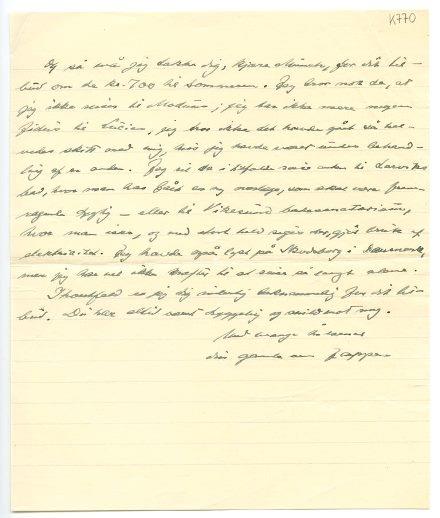 K770
Og så må jeg takke dig, kjære Munch, for dit til-
bud om de kr. 700 til sommeren. Jeg tror nok da, at
jeg ikke reiser til Modum; jeg har ikke mere nogen
til jeg tror ikke det havde gået så hel-
vedes skitt med mig, hvis jeg havde været under behand-
ling af en anden. Jeg vil da i tilfælde reise enten til Larviks
bad, hvor man har fået en ny læge, som skal være frem-
ragende dygtig – eller til Vikersund
hvor man især, og med stort held siges der, gjør bruk af
elektricitet. Jeg havde også lyst på Skodsborg i Danmark,
men jeg har vel ikke kræfter til at reise så langt alene.
I hvertfald er jeg dig inderlig taknemmelig for dit til-
bud. Du har altid været hyggelig og snild mot mig.
Med mange hilsener
din gamle ven Jappe